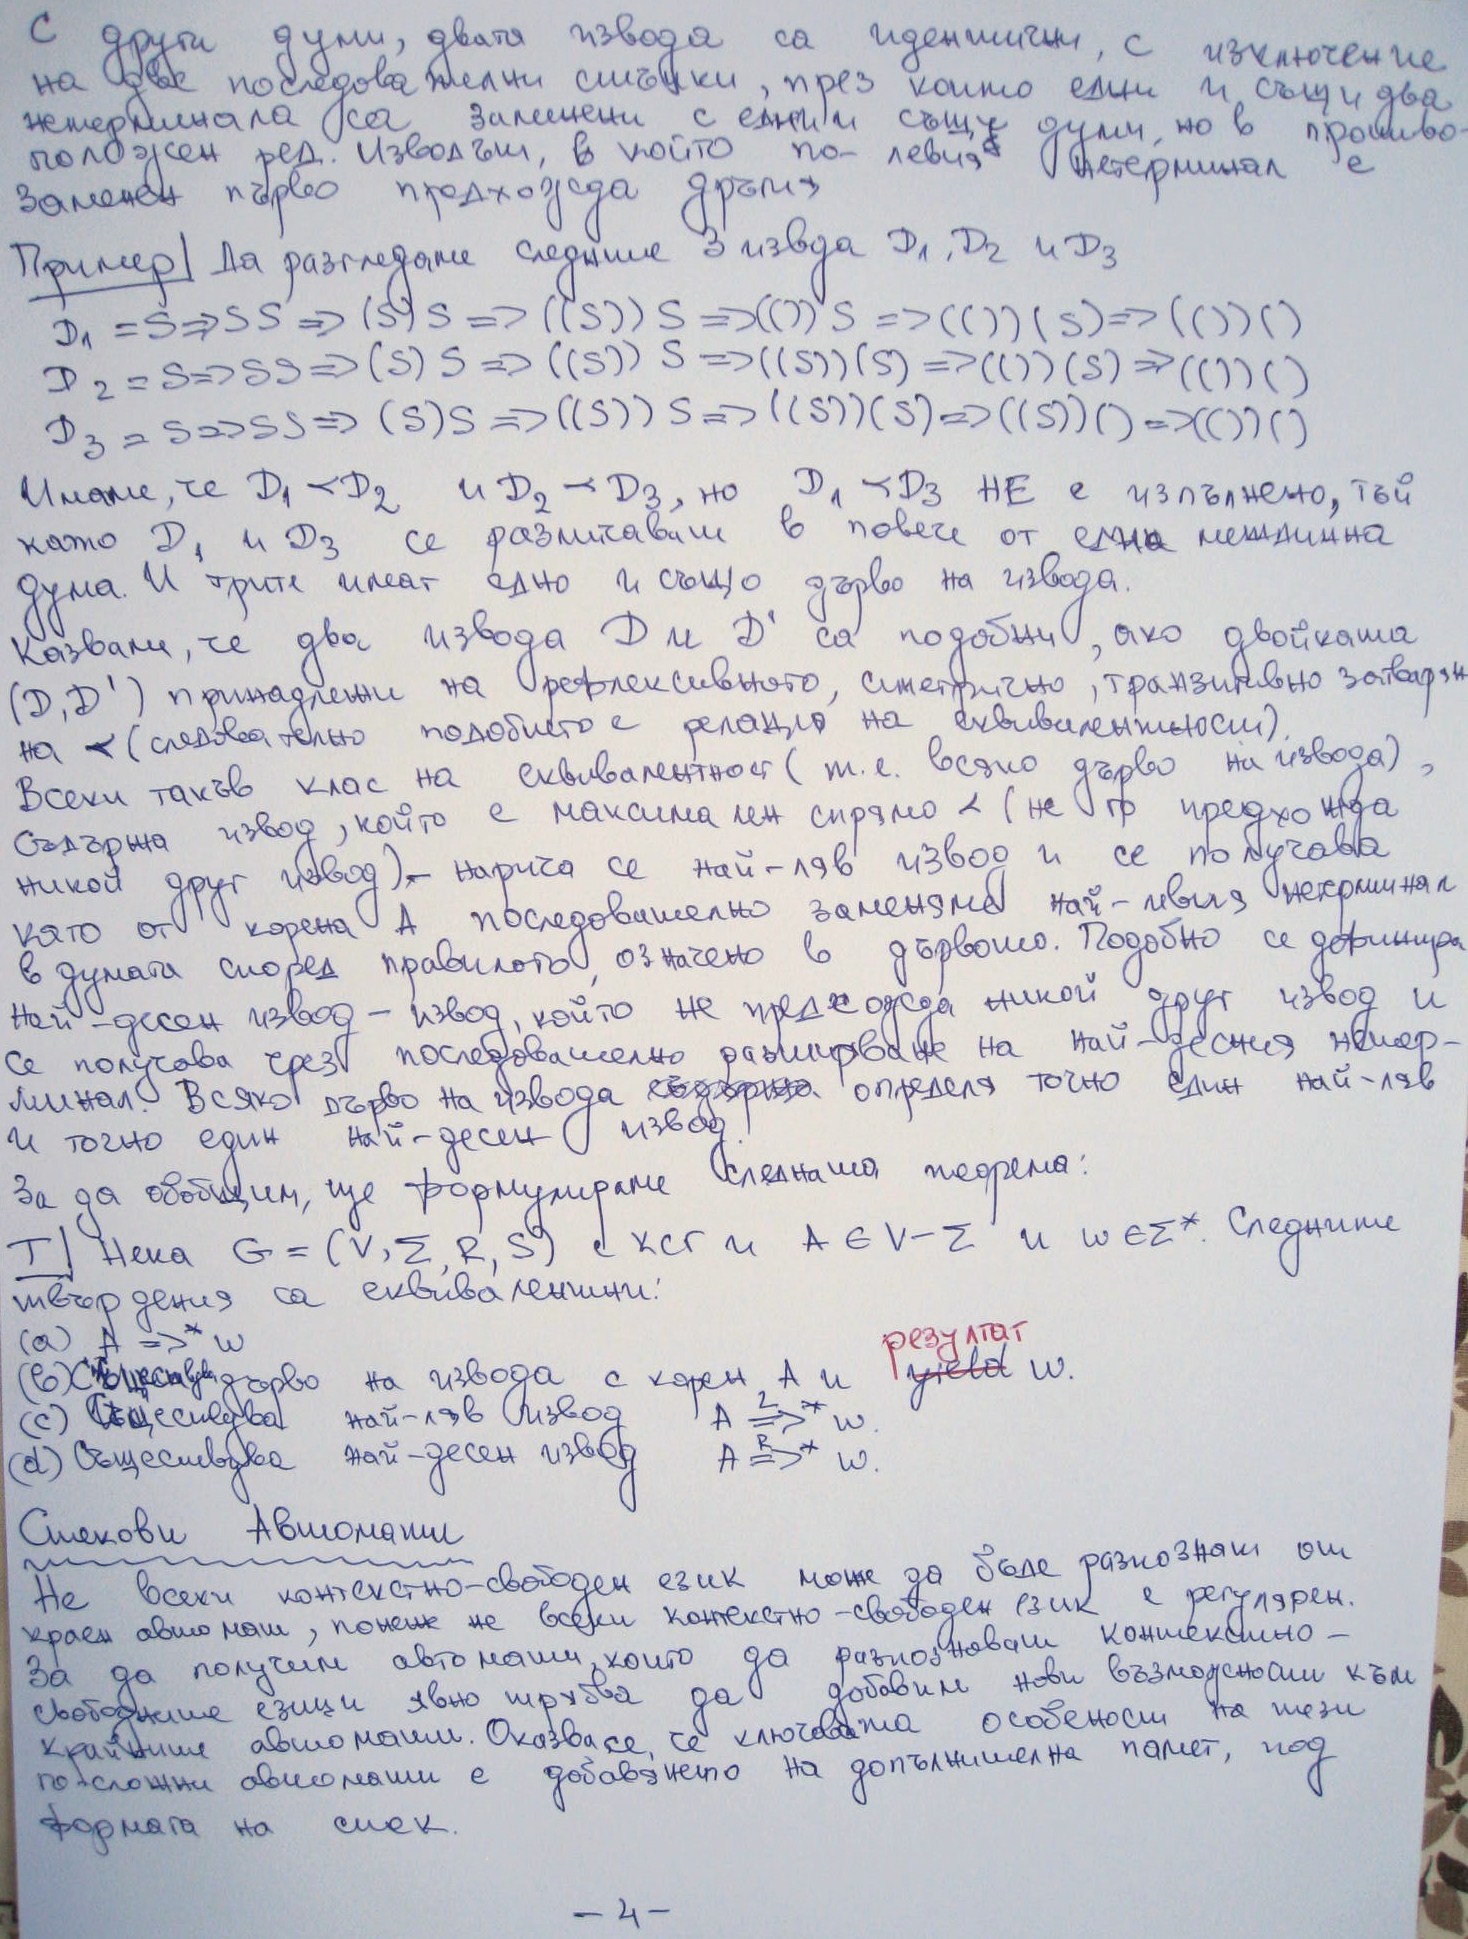 С други думи, двата извода са идентични, с изключение
на две последователни стъпки, през които едни и същи два
нетерминала са заменени с едни и същи думи, но в противо-
положен ред. Изводът, в който по-левият нетерминал е
заменен първо предхожда другия
Пример| Да разгледаме следните 3 извода D₁, D₂ и D₃
D₁ = S=>SS => (S)S => ((S))S =>(())S => (())(S)=> (())()
D₂ = S=>SS=>(S)S => ((S))S =>((S))(S) =>(())(S) => (())()
D₃ = S=>SS=> (S)S =>((S))S => ((S))(S)=>((S))() =>(())()
Имаме, че D₁ ≺ D₂ и D₂ ≺ D₃, но D₁ ≺ D₃ НЕ е изпълнено, тъй
като D₁ и D₃ се различават в повече от една междинна
дума. И трите имат едно и също дърво на извода.
Казваме, че два извода D и D' са подобни, ако двойката
(D, D') принадлежи на рефлексивното, симетрично, транзитивно затварян
на ≺ (следователно подобието е релация на еквивалентност).
Всеки такъв клас на еквивалентност (т.е. всяко дърво на извода),
съдържа извод, който е максимален спрямо ≺ (не го предхожда
никой друг извод) - нарича се най-ляв извод и се получава
като от корена A последователно заменяме най-левия нетерминал
в думата според правилото, означено в дървото. Подобно се дефинира
най-десен извод - извод, който не предхожда никой друг извод и
се получава чрез последователно разширяване на най-десния нетер-
минал. Всяко дърво на извода определя точно един най-ляв
и точно един най-десен извод.
За да обобщим, ще формулираме следната теорема:
T| Нека G = (V, Σ, R, S) е КСГ и A ∈ V-Σ и w ∈ Σ*. Следните
твърдения са еквивалентни:
(a) A =>* w
результат
(b) Съществува дърво на извода с корен A и yield w.
(c) Съществува най-ляв извод A L=>* w.
(d) Съществува най-десен извод A R=>* w.
Стекови Автомати
Не всеки контекстно-свободен език може да бъде разпознат от
краен автомат, понеже не всеки контекстно-свободен език е регулярен.
За да получим автомати, които да разпознават контекстно-
свободните езици явно трябва да добавим нови възможности към
крайните автомати. Оказва се, че ключовата особеност на тези
по-сложни автомати е добавянето на допълнителна памет, под
формата на стек.
- 4 -